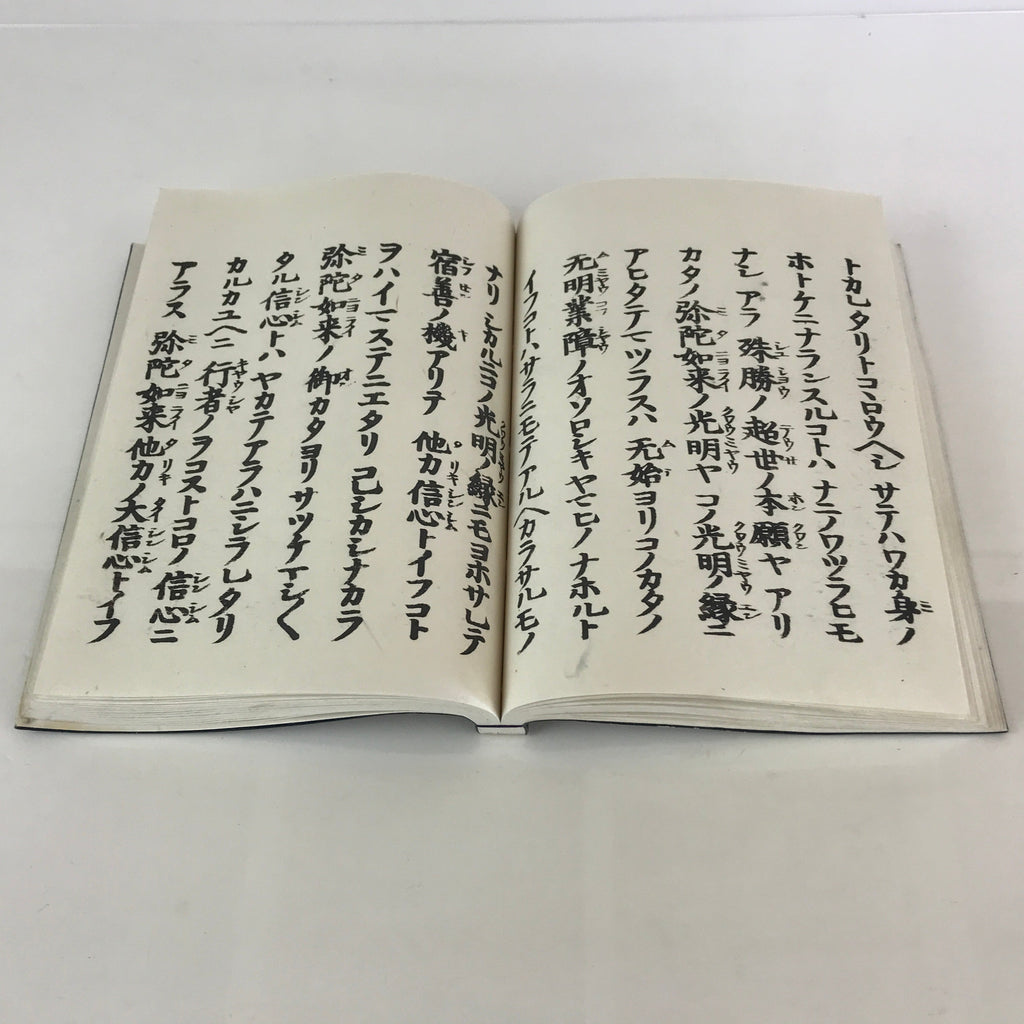 トカレタリトコヽロウヘシ サテハワカ身ノ
ホトケニナランスルコトハ ナニノワツラヒモ
ナシ アラ 殊勝ノ超世ノ本願ヤ アリ
カタノ 弥陀如来ノ光明ヤ コノ光明ノ縁ニ
アヒタテマツラスハ 无始ヨリコノカタノ
无明業障ノオソロシキヤマヒノナホルト
イフコトハサラニモテアルヘカラサルモノ
ナリ シカルニコノ光明ノ縁ニモヨホサレテ
宿善ノ機アリテ 他力信心トイフコト
ヲハイマステニエタリ コレシカシナカラ
弥陀如来ノ御カタヨリサツケマシ〱
タル信心トハ ヤカテアラハニシラレタリ
カルカユヘニ 行者ノヲコストコロノ信心ニ
アラス 弥陀如来他力ノ大信心トイフ